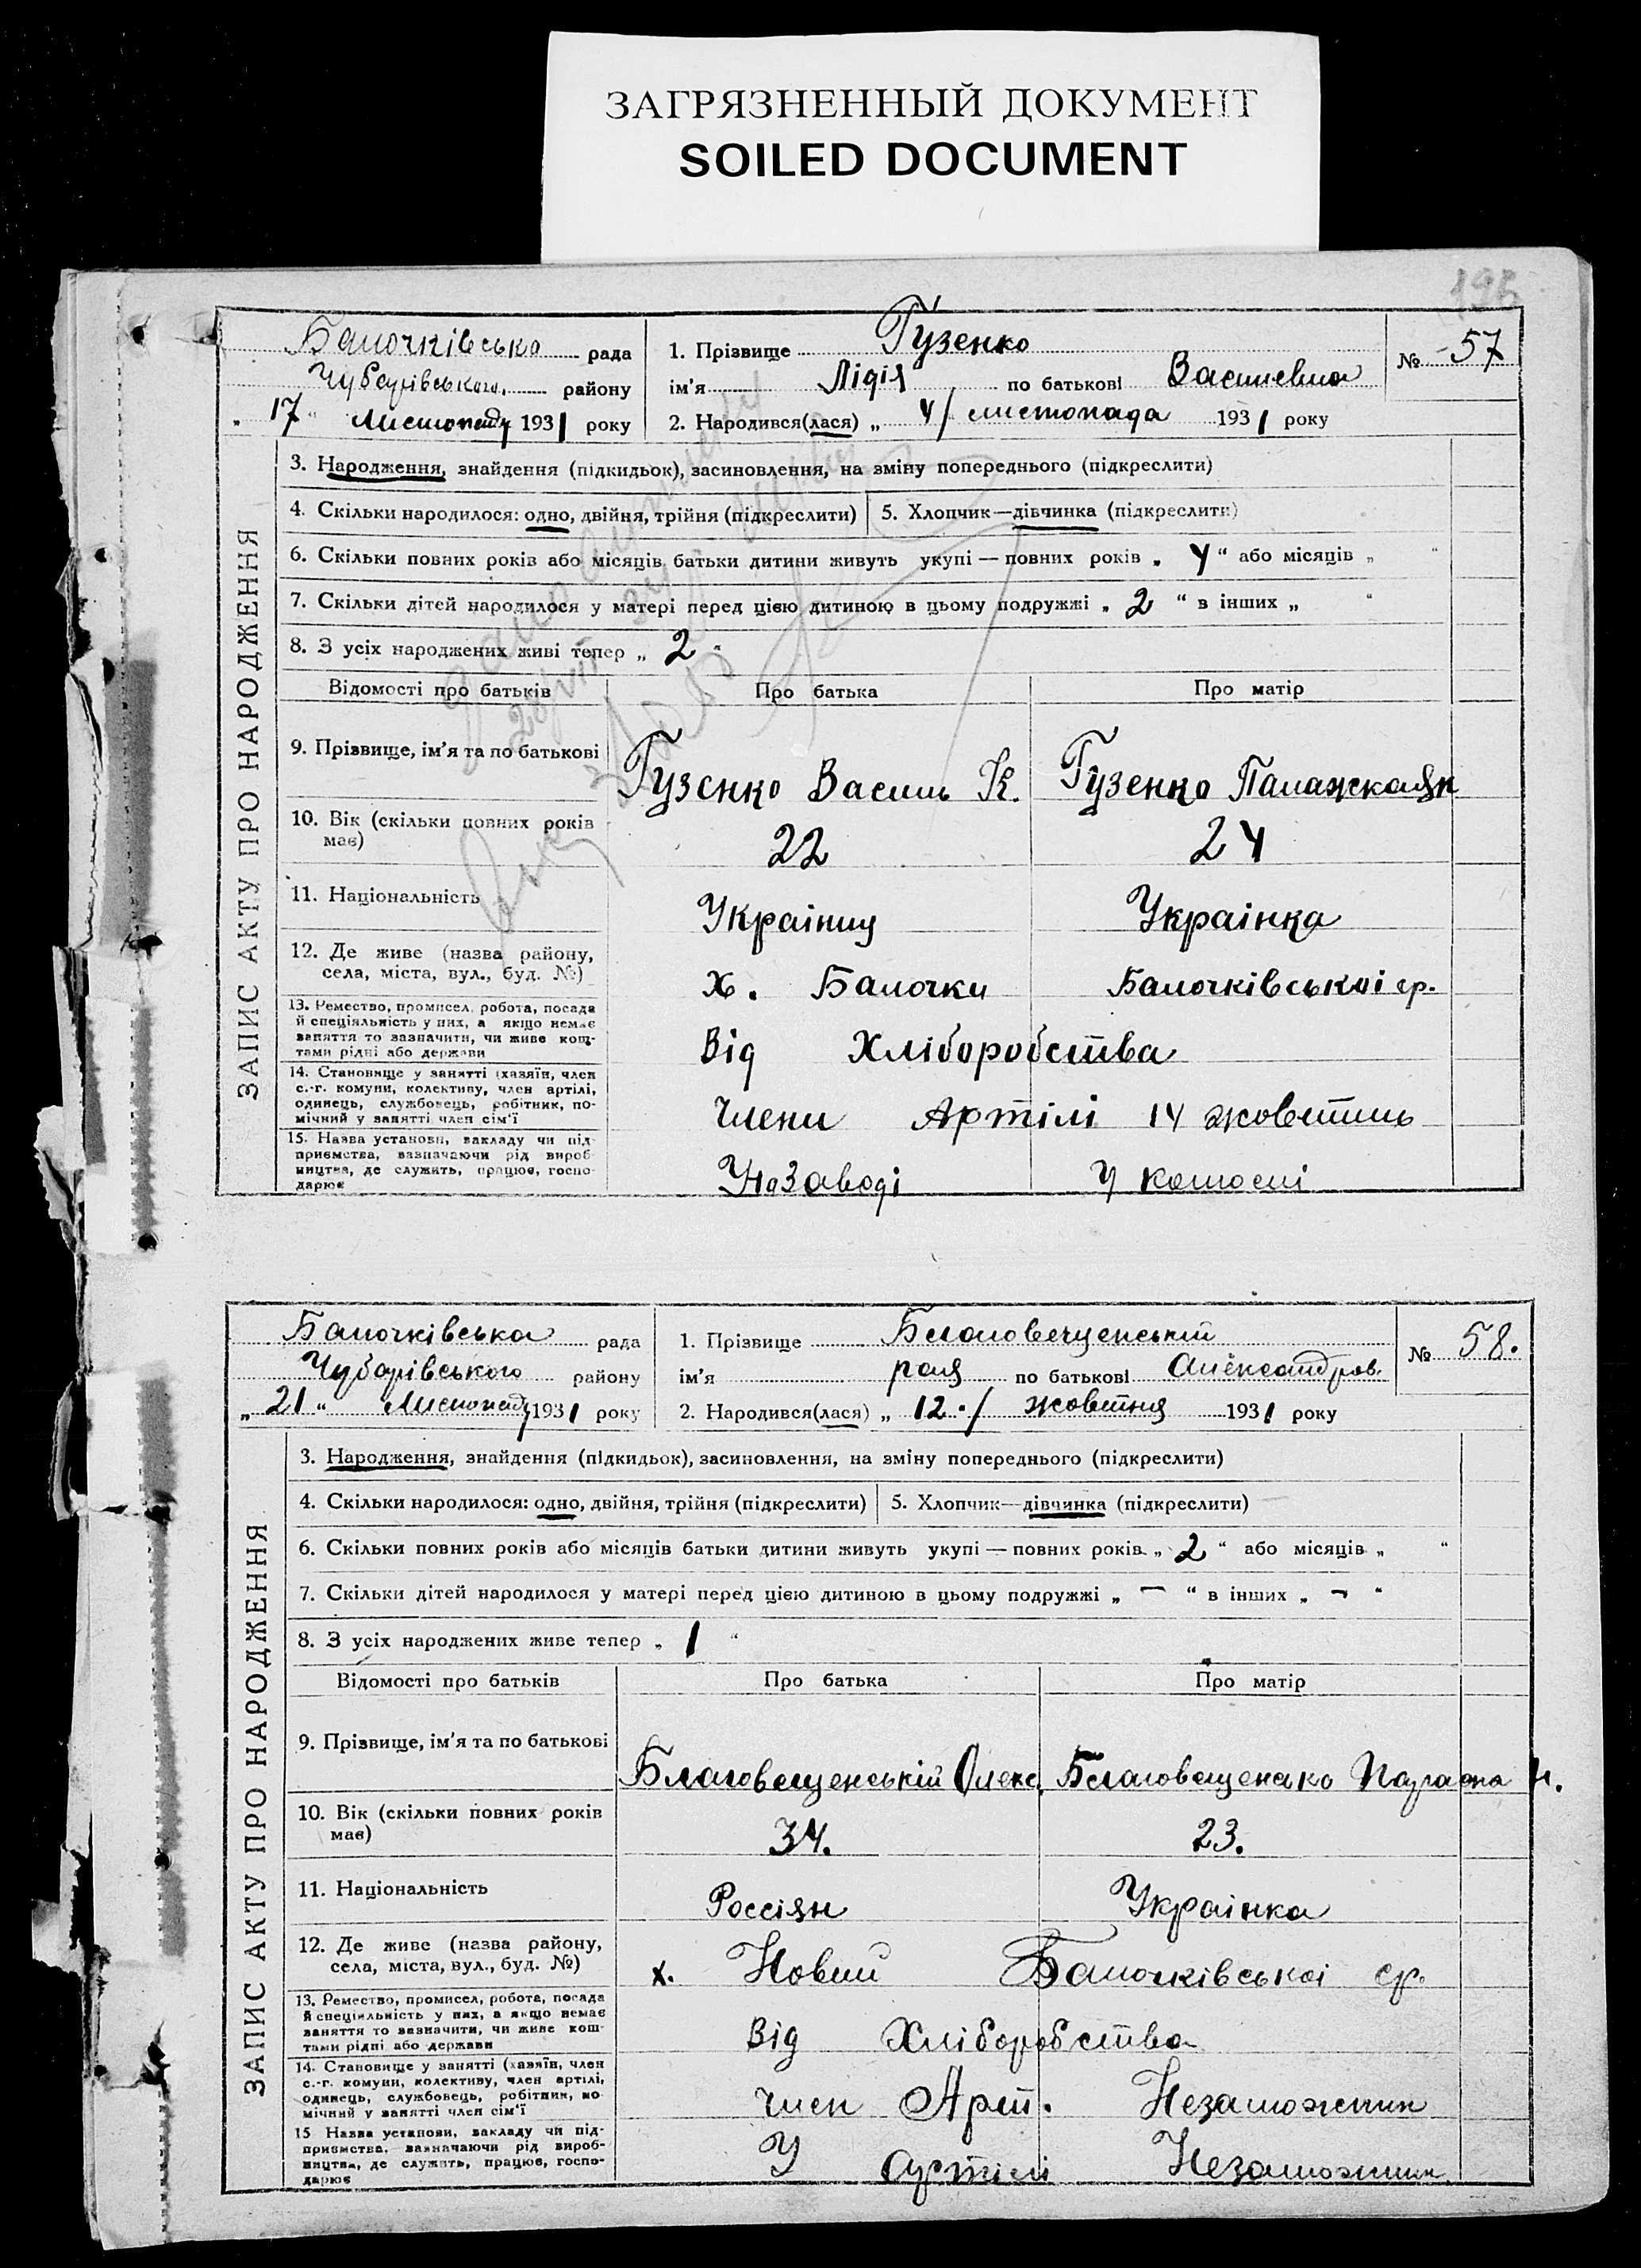 ЗАГРЯЗНЕННЫЙ ДОКУМЕНТ
SOILED DOCUMENT
195
ЗАПИС АКТУ ПРО НАРОДЖЕННЯ
Балочківсько рада
Чубарівського району
„ 17 " Листопаду 1931 року
1. Прізвище Гузенко
ім'я Лідія по батькові Василевна
2. Народився(лася) „ 4/ листопада 1931 року
№ 57
3. Народження, знайдення (підкидьок), засиновлення, на зміну попереднього (підкреслити)
4. Скільки народилося: одно, двійня, трійня (підкреслити) 5. Хлопчик—дівчинка (підкреслити)
6. Скільки повних років або місяців батьки дитини живуть укупі — повних років „ 4 " або місяців „ "
7. Скільки дітей народилося у матері перед цією дитиною в цьому подружжі „ 2 " в інших „ "
8. З усіх народжених живі тепер „ 2 "
Відомості про батьків Про батька Про матір
9. Прізвище, ім'я та по батькові Гузенко Василь К. Гузенко Палажка
10. Вік (скільки повних років має) 22 24
11. Національність Українец Українка
12. Де живе (назва району, села, міста, вул., буд. №) х. Балочки Балочківської ср.
13. Ремество, промисел, робота, посада й спеціяльність у них, а якщо немає заняття то зазначити, чи живе коштами рідні або держави Від Хліборобства
14. Становище у занятті (хазяїн, член с.-г. комуни, колективу, член артілі, одинець, службовець, робітник, помічний у занятті член сім'ї Члени Артілі 14 жовтень
15. Назва установи, закладу чи підприємства, зазначаючи рід виробництва, де служить, працює, господарює На Заводі У
ЗАПИС АКТУ ПРО НАРОДЖЕННЯ
Балочківська рада
Чубарівського району
„ 21 " Листопаду 1931 року
1. Прізвище Благовещенській
ім'я рая по батькові Александров.
2. Народився(лася) „ 12./ жовтня 1931 року
№ 58.
3. Народження, знайдення (підкидьок), засиновлення, на зміну попереднього (підкреслити)
4. Скільки народилося: одно, двійня, трійня (підкреслити) 5. Хлопчик—дівчинка (підкреслити)
6. Скільки повних років або місяців батьки дитини живуть укупі — повних років „ 2 " або місяців „ "
7. Скільки дітей народилося у матері перед цією дитиною в цьому подружжі „ — " в інших „ — "
8. З усіх народжених живе тепер „ 1 "
Відомості про батьків Про батька Про матір
9. Прізвище, ім'я та по батькові Благовещенській Олекс. Благовещенско Параска Н.
10. Вік (скільки повних років має) 34. 23.
11. Національність Россіян Українка
12. Де живе (назва району, села, міста, вул., буд. №) х. Новий Балочківської ср.
13. Ремество, промисел, робота, посада й спеціяльність у них, а якщо немає заняття то зазначити, чи живе коштами рідні або держави Від Хліборобства
14. Становище у занятті (хазяїн, член с.-г. комуни, колективу, член артілі, одинець, службовець, робітник, помічний у занятті член сім'ї член Арт. Незаможник
15 Назва установи, закладу чи підприємства, зазначаючи рід виробництва, де служить, працює, господарює У артілі Незаможник